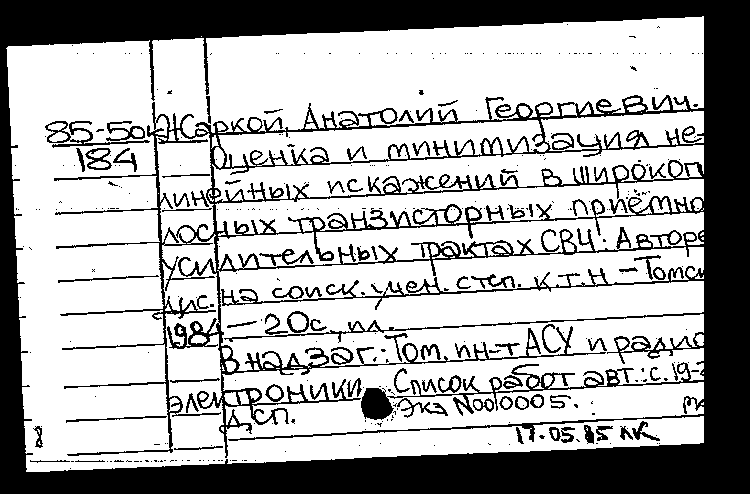 85-50к Жаркой, Анатолий Георгиевич.
184 Оценка и минимизация не-
линейных искажений в широкоп
лосных транзисторных приёмно
усилительных трактах СВЧ: Авторе
дис. на соиск. учен. степ. к.т.н – Томск
1984 – 20с., ил.
В надзаг.: Том. ин-т АСУ и радио
электроники. Список работ авт.: с. 19-2
Дсп. Экз №00005.
8 17.05.85 лк